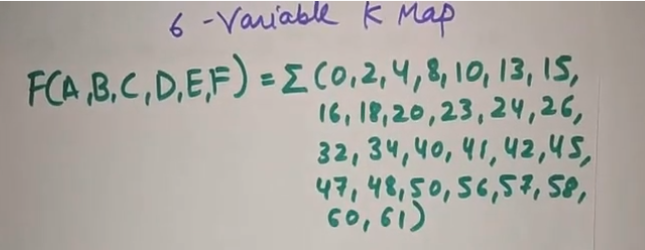 6 - Variable K Map
F(A,B,C,D,E,F) = Σ (0,2,4,8,10,13,15,
16,18,20,23,24,26,
32,34,40,41,42,45,
47,48,50,56,57,58,
60,61)